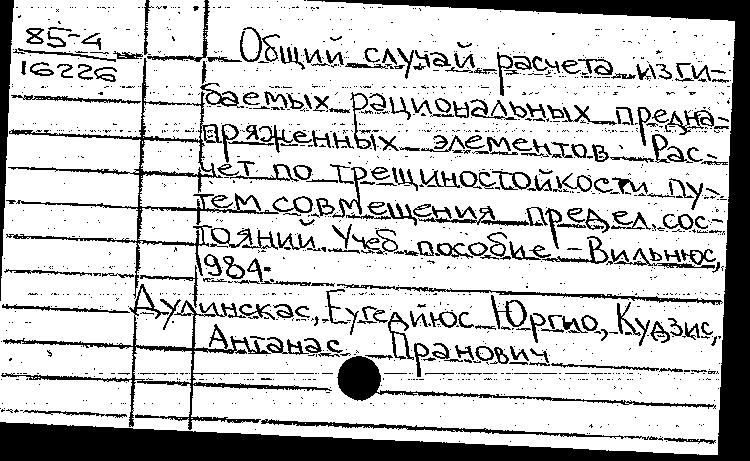 85-4
16226
Общий случай расчета изги-
баемых рациональных предна-
пряженных элементов: Рас-
чет по трещиностойкости пу-
тем совмещения предел. сос-
тояний. Учеб. пособие. - Вильнюс,
1984.
Дулинскас, Еугедиюс Юргио, Кудзис,
Антанас Пранович